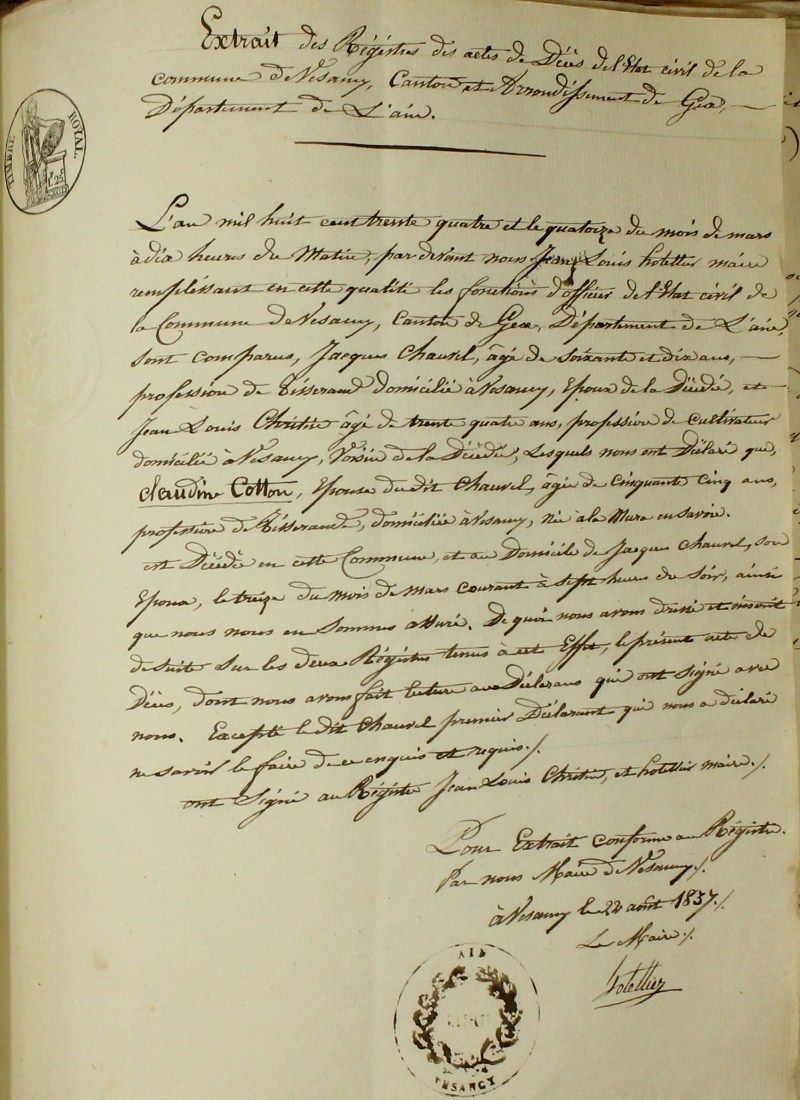 Extrait des Régistres des actes de Décès de l'Etat civil de la
commune de Vesancy, Canton et Arrondissement de Gex,
Département de L'ain.
TIMBRE ROYAL.
L'an mil huit cent trente quatre et le quatorze du mois de mars
à dix heures du Matin, par devant nous Jean Louis hotellier maire
remplissant en cette qualité les fonctions d'officier de l'Etat civil de
la Commune de Vesancy, Canton de Gex, Département de L'ain,
sont comparus, Jacques Chauvel, âgé de soixante et dix ans,
profession de Tisserand domicilié à Vesancy, Epoux de la Décédée, et
Jean Louis Christin âgé de trente quatre ans, profession de Cultivateur
domicilié à Vesancy, Voisin de la Décédée, Lesquels nous ont Déclaré que,
Claudine Cotton, Epouse du dit Chauvel, âgée de Cinquante Cinq ans,
profession de Tisserande, domiciliée à Vesancy, née à la Mure en Savoie.
est Décédée en cette Commune, et au Domicile de Jacques Chauvel, son
Epoux, le treize du mois de mars courant à sept heures du Soir, ainsi
que nous nous en sommes assuré. De quoi nous avons dressé et inscrit
de suite sur les deux Régistres tenus à cet Effet, le présent acte de
Décès, dont nous avons fait lecture aux Déclarans qui ont signé avec
nous. Excepté le dit Chauvel premier Déclarant qui nous a déclaré
ne savoir le faire de ce enquis et requis./.
ont Signé au Régistre Jean Louis Christin, et hotellier maire./.
Pour Extrait conforme au Régistre.
Par nous Maire de Vesancy./.
à Vesancy le 22 août 1837./.
Le Maire./.
hotellier
AIN
VESANCY